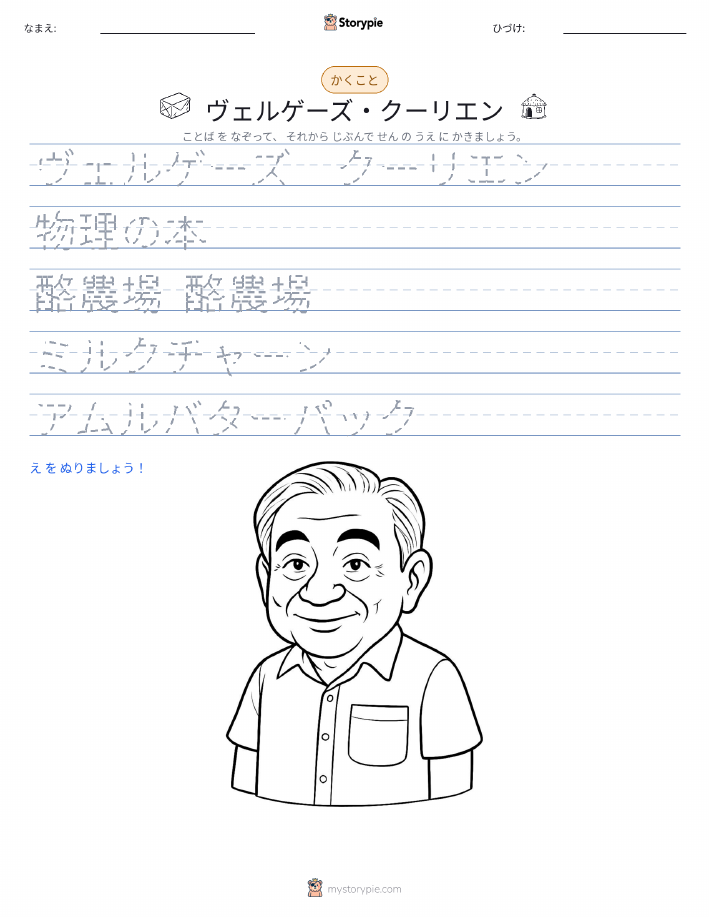 なまえ:
Storypie
ひづけ:
かくこと
ヴェルゲーズ・クーリエン
ことば を なぞって、 それから じぶんで せん の うえ に かきましょう。
ヴェルゲーズ クーリエン
物理の本
酪農場 酪農場
ミルクチャーン
アムルバターパック
え を ぬりましょう！
mystorypie.com